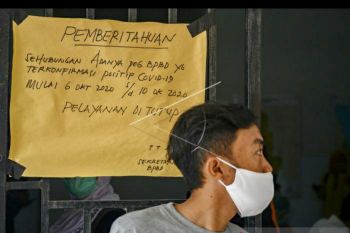 PEMBERITAHUAN
SEHUBUNGAN ADANYA PEG BPBD YG
TERKONFIRMASI POSITIF COVID-19
MULAI 6 OKT 2020 S/d 10 OKT 2020
PELAYANAN DI TUTUP
TT
SEKRETAR
BPBD